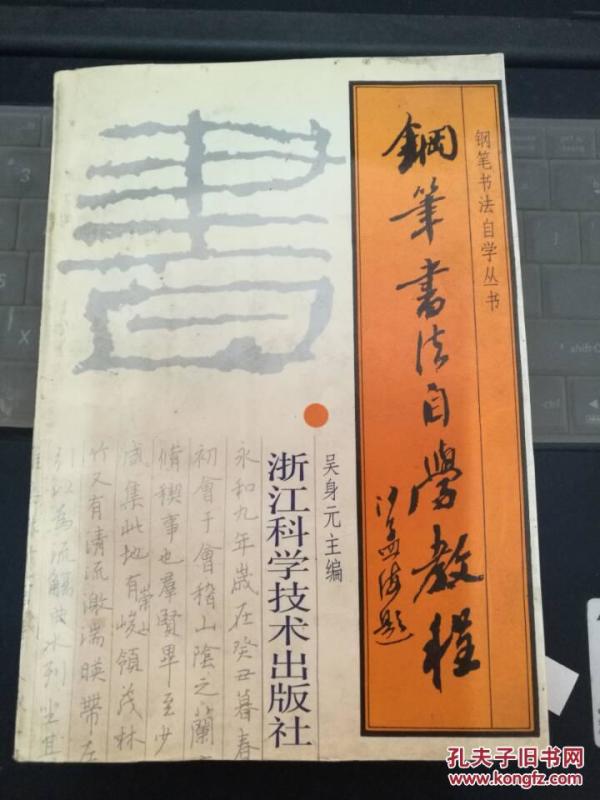 钢笔书法自学丛书
鋼筆書法自學教程
沙孟海题
書
吴身元主编
浙江科学技术出版社
永和九年歲在癸丑暮春
初會于會稽山陰之蘭
脩稧事也羣賢畢至少
咸集此地有崇山峻領茂林
竹又有清流激湍暎帶左
引以為流觴曲水列坐其
孔夫子旧书网
www.kongfz.com